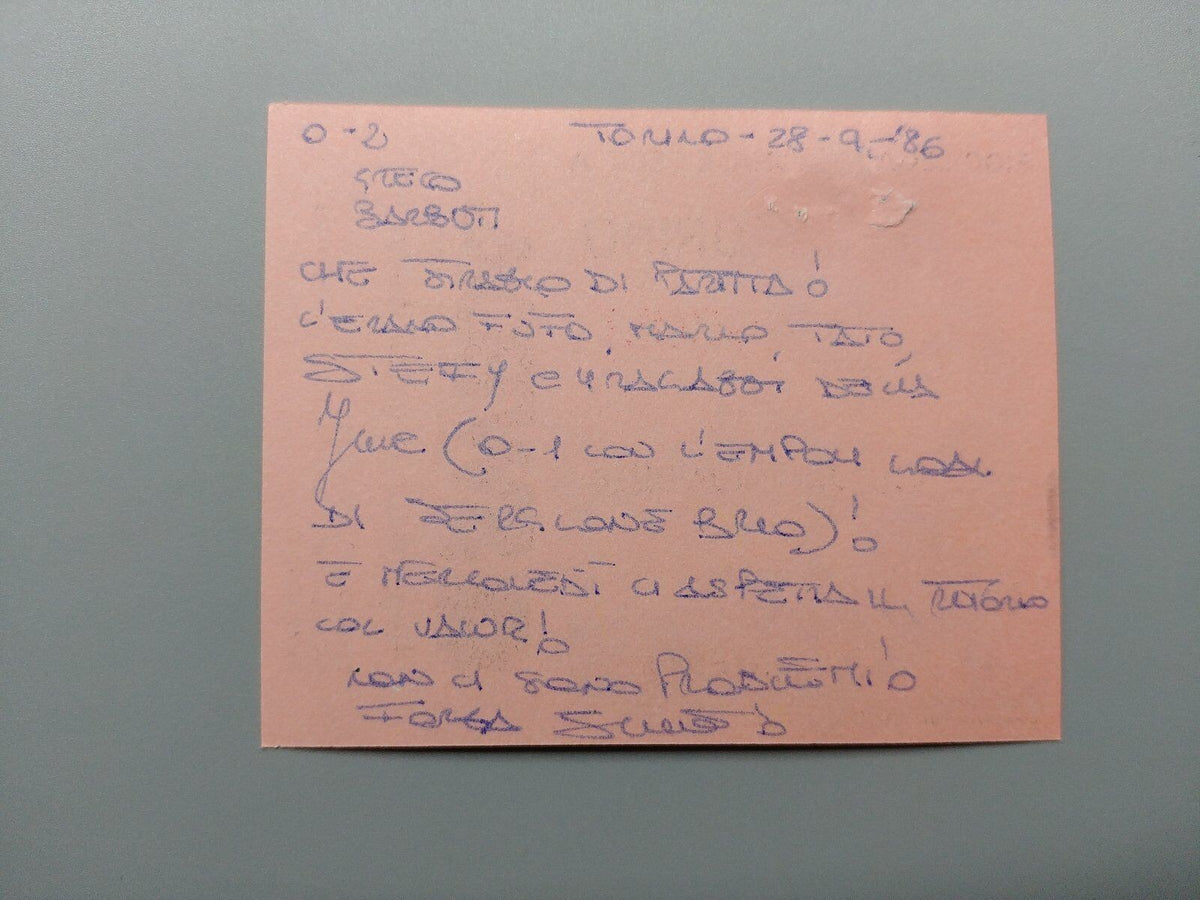 0-2 TORINO - 28-9-'86
GRECO
BARBUTI
CHE STRAZIO DI PARTITA!
C'ERANO MARIO, TATO,
STEFY E 4 RAGAZZI DELLA
Juve (0-1 CON L'EMPOLI GOAL
DI SERGIONE BRIO)!
E MERCOLEDÌ CI ASPETTA IL RITORNO
COL
NON CI SONO PROBLEMI!
FORZA